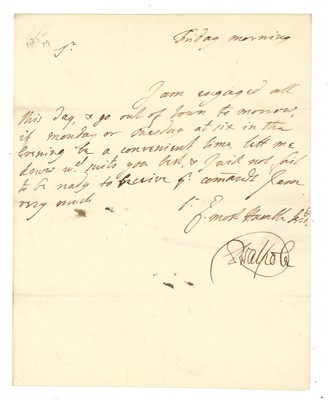 Friday morning
Sr
I am engaged all
this day, & go out of town to morrow,
if monday or tuesday at six in the
Evening be a convenient time, lett me
know wch suits you best, & I will not fail
to be ready to receive yr comands I am
very much
Sr
yr most Humble Sert
RWalpole